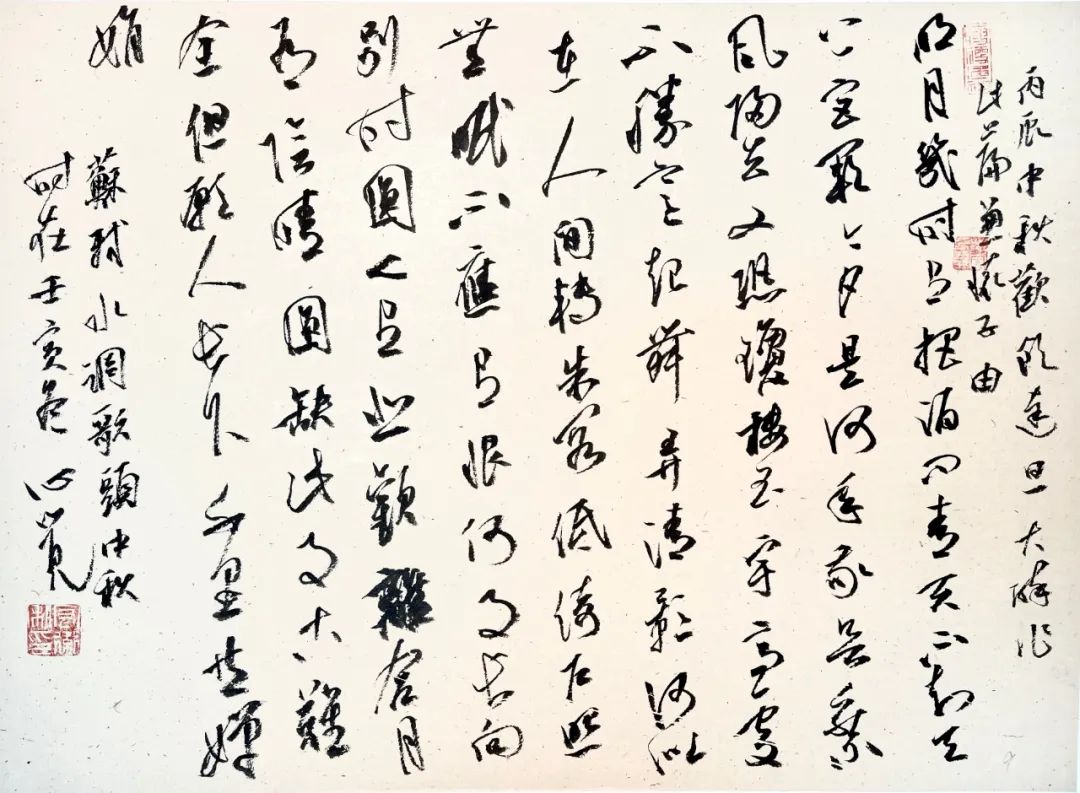 丙辰中秋歡飲達旦大醉作
此篇兼懷子由
明月幾時有把酒問青天不知天
上宮闕今夕是何年我欲乘
風歸去又恐瓊樓玉宇高處
不勝寒起舞弄清影何似
在人間轉朱閣低綺戶照
無眠不應有恨何事長向
別時圓人有悲歡離合月
有陰晴圓缺此事古難
全但願人長久千里共嬋
娟
蘇軾水調歌頭中秋
時在壬寅